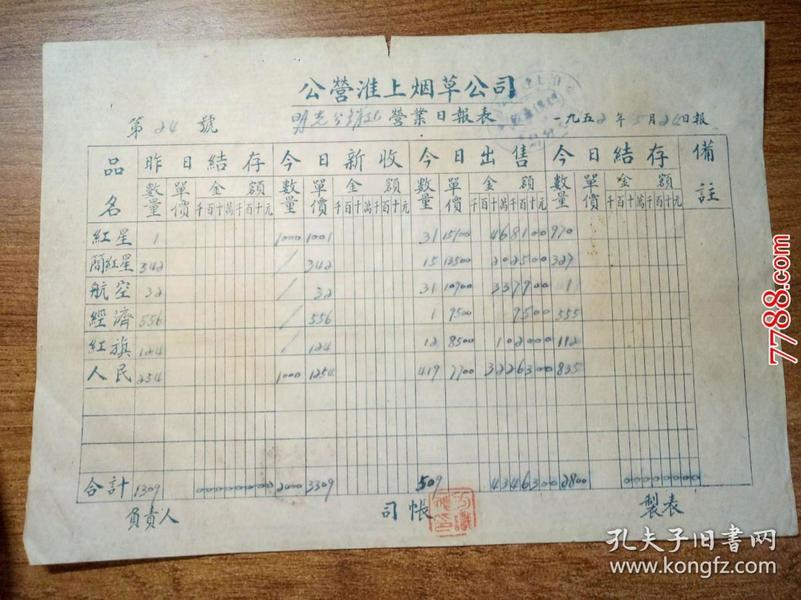 公營淮上烟草公司
第24號 營業日報表 一九五2年5月24日報
品名 昨日結存 今日新收 今日出售 今日結存 備註
數量 單價 金額 數量 單價 金額 數量 單價 金額 數量 單價 金額
千百十萬千百十元 千百十萬千百十元 千百十萬千百十元 千百十萬千百十元
紅星 1 1000 1001 31 15100 468100 970
簡紅星 342 / 342 15 13500 202500 327
航空 32 / 32 31 10900 337900 1
經濟 556 / 556 1 9500 9500 555
紅旗 124 / 124 12 8500 102000 112
人民 254 1000 1254 419 7700 3226300 835
合計 1309 00000000 2000 3309 509 4346300 2800 00000000
負責人 司帳 製表
7788.com
孔夫子旧書网
www.kongfz.com